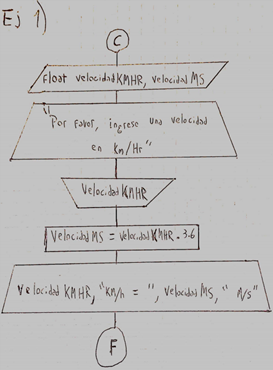 Ej 1)
C
float velocidadKMHR, velocidadMS
"Por favor, ingrese una velocidad
en Km/Hr"
VelocidadKMHR
VelocidadMS = velocidadKMHR . 3.6
VelocidadKMHR, "KM/h = ", velocidadMS, " M/s"
F